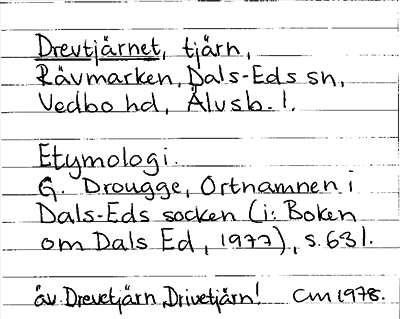 Drevtjärnet, tjärn,
Rävmarken, Dals-Eds sn,
Vedbo hd, Älvsb. l.
Etymologi.
G. Drougge, Ortnamnen i
Dals-Eds socken (i: Boken
om Dals Ed, 1977), s. 631.
äv Drevetjärn, Drivetjärn! CM 1978.